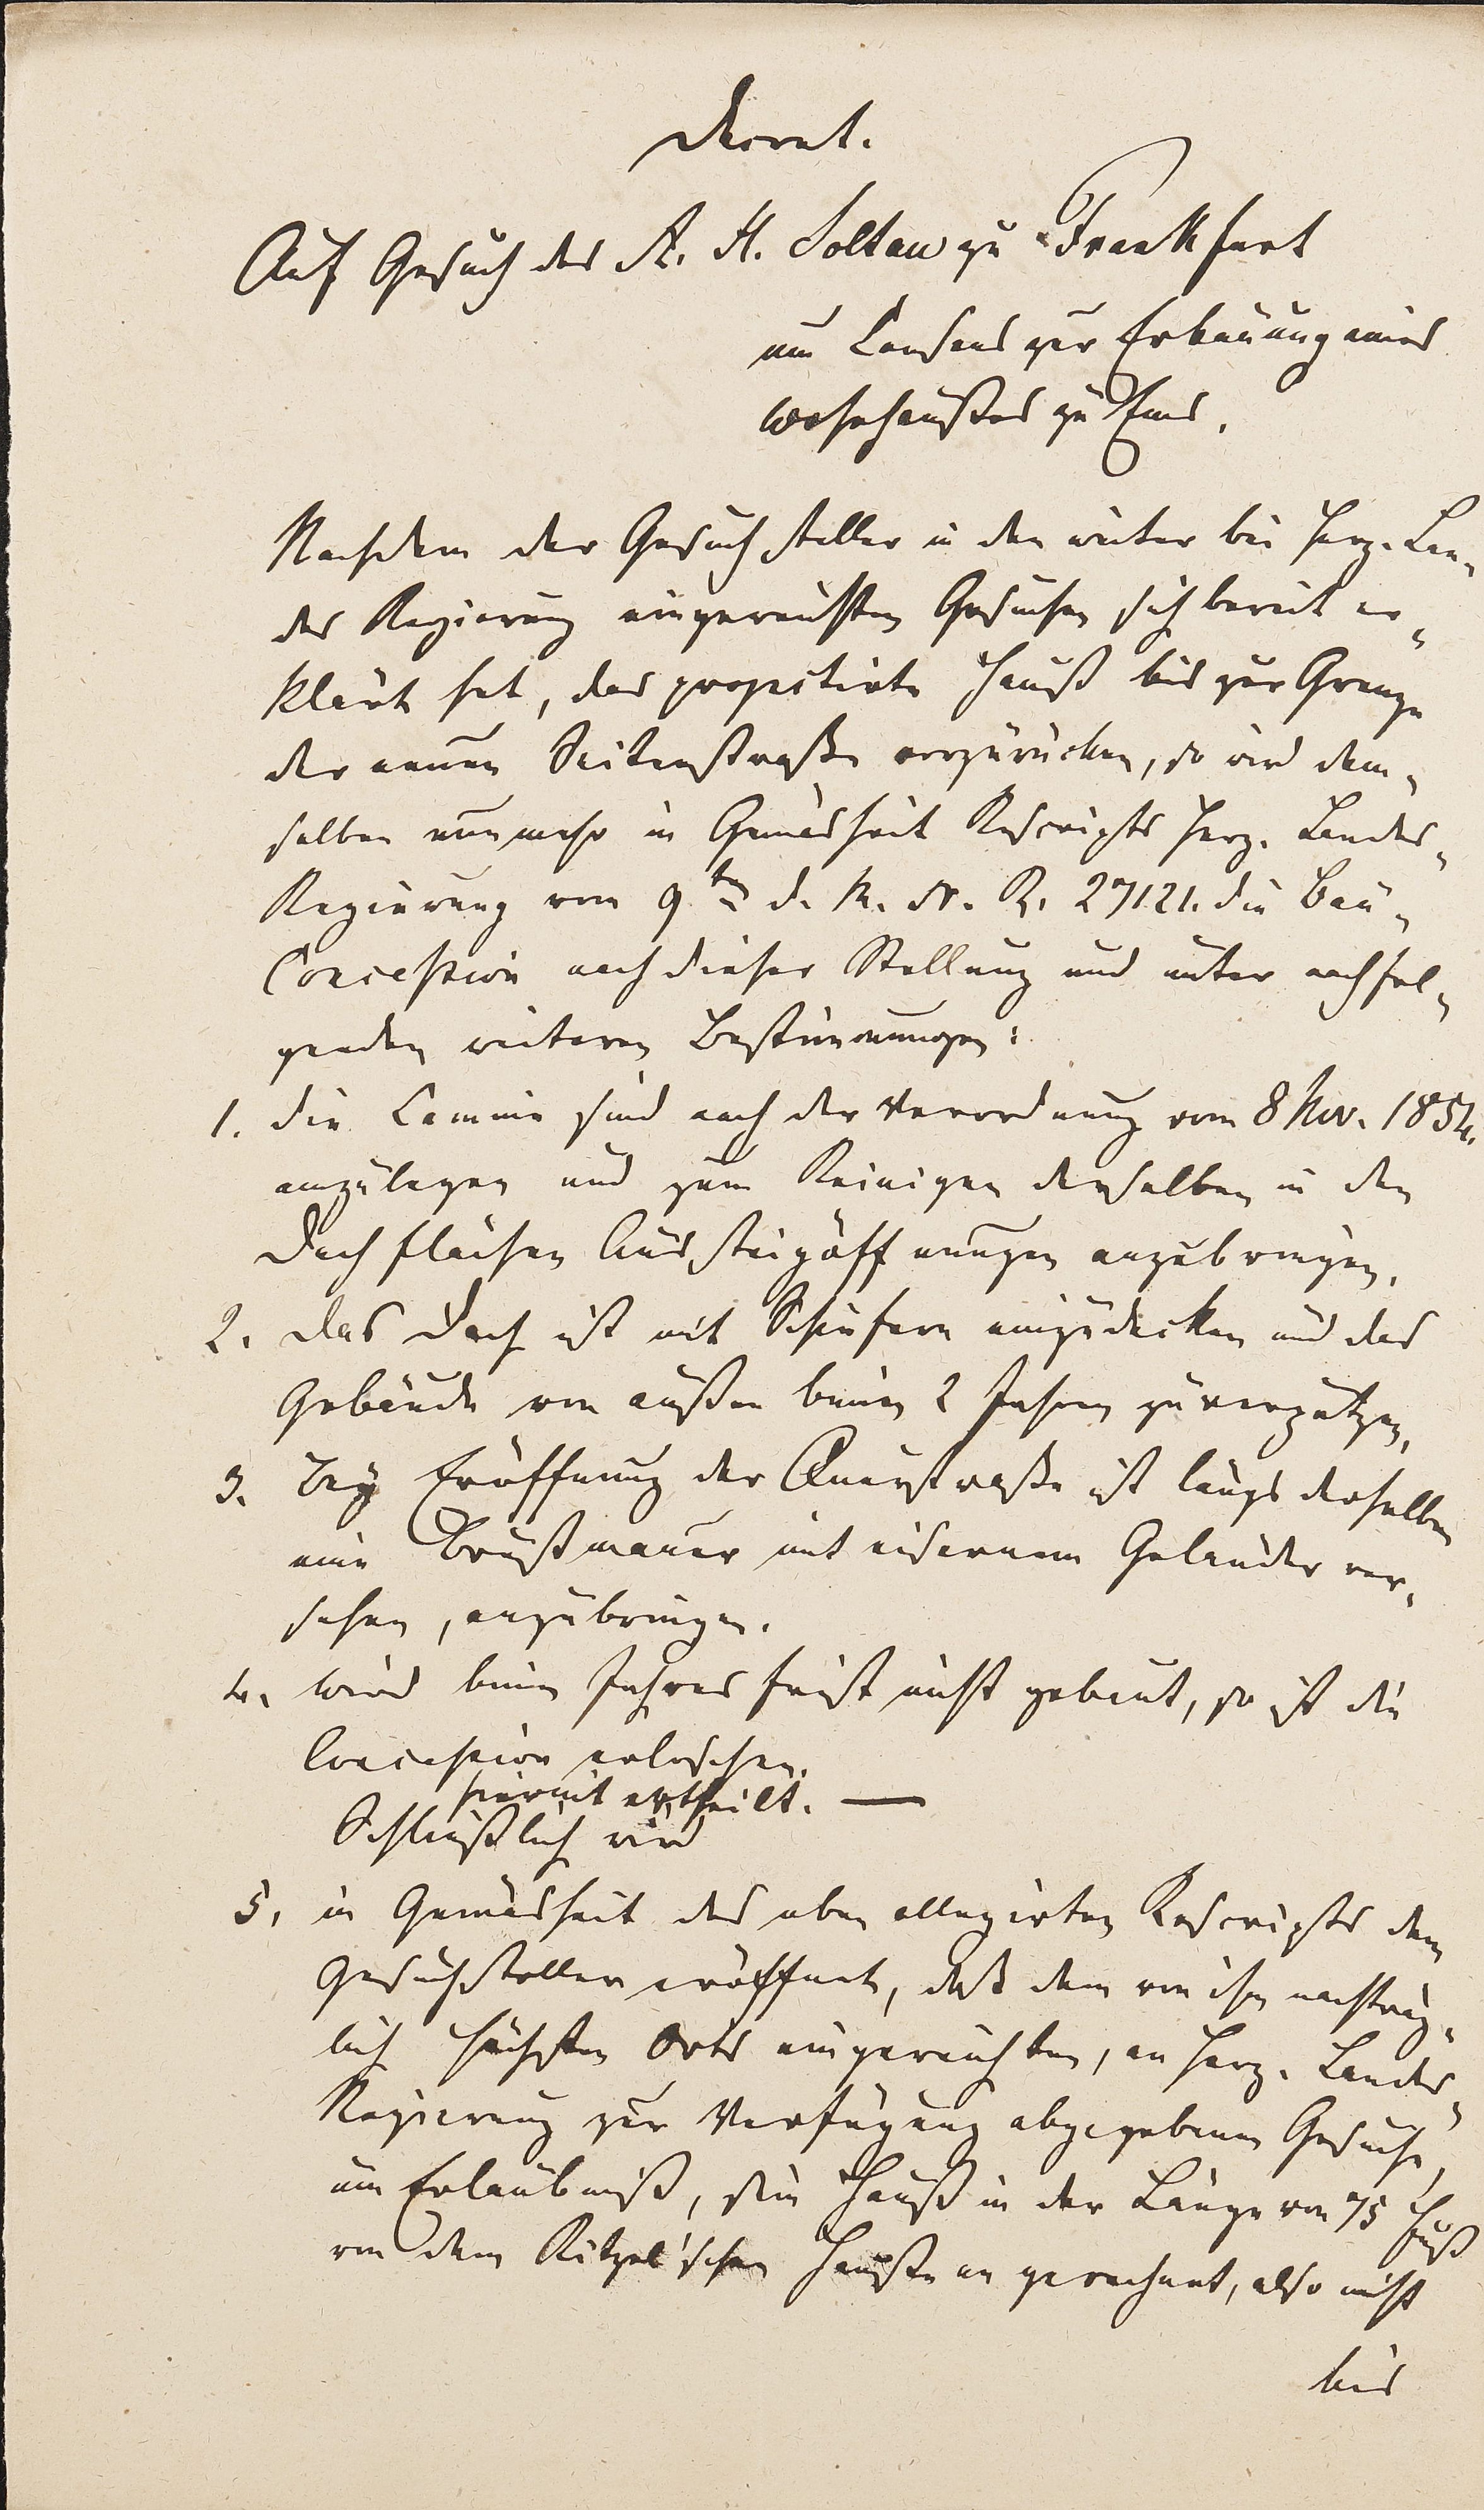 Decret.
Auf Gesuch des A. H. Soltau zu Frankfurt
um Consens zur Erbauung eines
Wohnhaußes zu Ems.
Nachdem der Gesuchsteller in den weiter bei Herz. Lan-
des Regierung eingereichten Gesuchen sich bereit er-
klärt hat, das projectirte Hauß bis zur Grenze
der neuen Seitenstraße vorzurücken, so wird dem-
selben nunmehr in Gemäsheit Rescripts Herz. Landes-
Regierung vom 9ten d. M. N. R. 27121. die Bau-
Concession nach dieser Stellung und unter nachfol-
genden weiteren Bestimmungen:
1. die Camine sind nach der Verordnung vom 8 Nov. 1854.
anzulegen und zum Reinigen derselben in den
Dachflächen Aussteigöffnungen anzubringen.
2. das Dach ist mit Schiefern einzudecken und das
Gebäude von außen binnen 2 Jahren zu verputzen,
3. Bey Eröffnung der Querstraße ist längs derselben
eine Brustmauer mit eisernem Geländer ver-
sehen, anzubringen.
4. wird binnen Jahresfrist nicht gebaut, so ist die
Concession erloschen.
hiermit ertheilt. —
Schließlich wird
5, in Gemäsheit des oben allegirten Rescripts dem
Gesuchsteller eröffnet, daß dem von ihm nachträg-
lich höchsten Orts eingereichten, an Herz. Landes-
Regierung zur Verfügung abgegebenen Gesuche,
um Erlaubniß, sein Hauß in der Länge von 75 Fuß
von dem Ritzel'schen Hauße an gerechnet, also nicht
bis